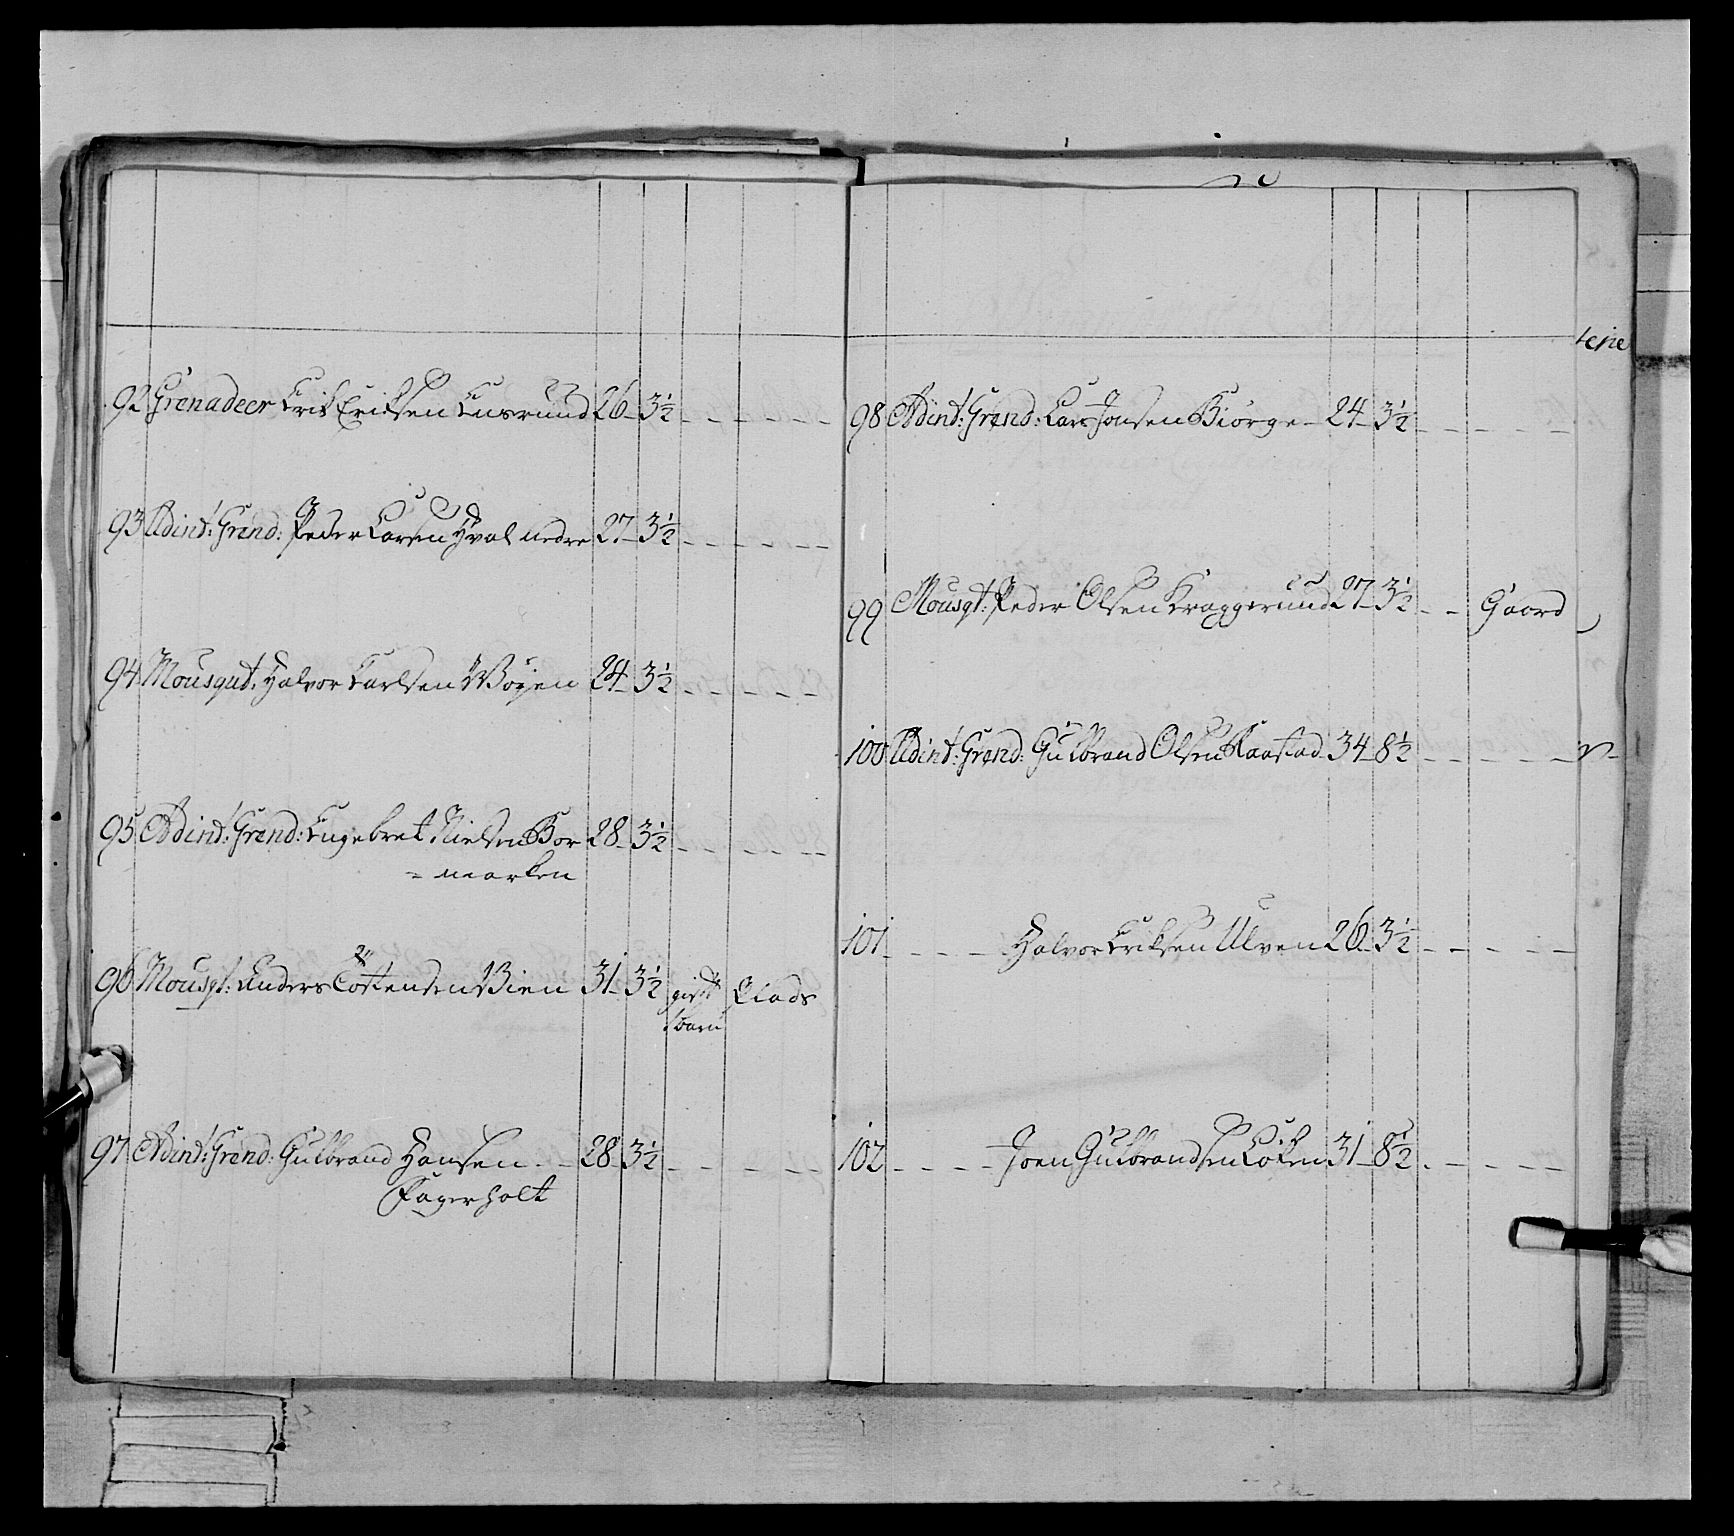 92 Grenadeer Erik Eriksen Ensrund 26 3½ - - - - -
93 Adint: Grend: Peder Larsen Hval nedre 27 3½ - - - - -
94 Mousqut. Halvor Carlsen Wøyen 24 3½ - - - - -
95 Adint: Grend: Engebret Nielsen Bor 28 3½ - - - - -
= marken
96 Mousqt: Anders Tostensen Bien 31 3½ givt Plads
1 barn
97 Adint: Grend: Gulbrand Hansen - - 28 3½ - - - - -
Fagerholt
98 Adint: Grend: Lars Jonsen Biörge - 24 3½ - - - - -
99 Mousqt: Peder Olsen Kraggerund 27 3½ - - Gaard
100 Adint: Grend: Gulbrand Olsen Raastad 34 8½ - - - - -
101 - - - - Halvor Eriksen Ulven 26 3½ - - - - -
102 - - - - Joen Gulbrandsen Löken 31 8½ - - - - -